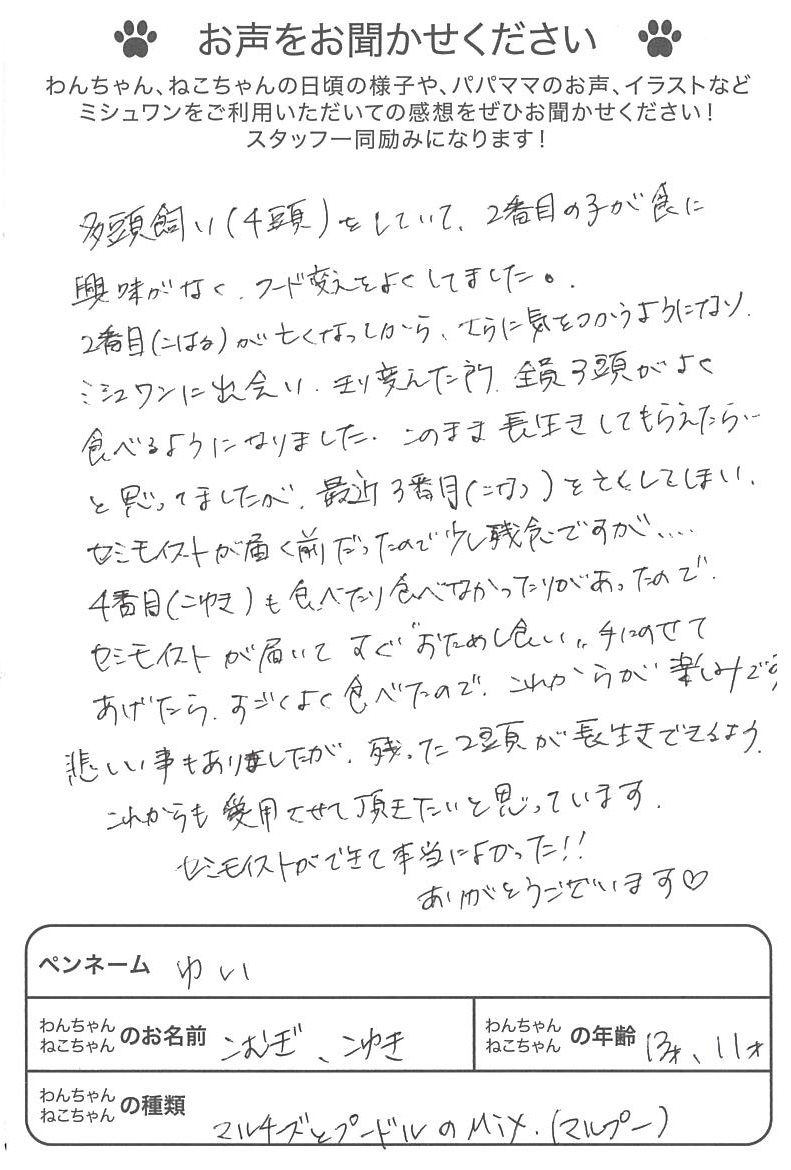 お声をお聞かせください
わんちゃん、ねこちゃんの日頃の様子や、パパママのお声、イラストなど
ミシュワンをご利用いただいての感想をぜひお聞かせください！
スタッフ一同励みになります！
多頭飼い(4頭)をしていて、2番目の子が食に
興味がなく、フード変えをよくしてました。
2番目(こはる)が亡くなってから、さらに気をつかうようになり、
ミシュワンに出会い、切り変えた所、全員3頭がよく
食べるようになりました。このまま長生きしてもらえたら…
と思ってましたが、最近3番目(こなつ)を亡くしてしまい、
セミモイストが届く前だったので少し残念ですが、...
4番目(こゆき)も食べたり食べなかったりがあったので、
セミモイストが届いてすぐ"おためし食い"手にのせて
あげたら、すごくよく食べたので、これからが楽しみです
悲しい事もありましたが、残った2頭が長生きできるよう、
これからも愛用させて頂きたいと思っています。
セミモイストができて本当によかった!!
ありがとうございます♡
ペンネーム ゆい
わんちゃん ねこちゃん のお名前 こむぎ、こゆき わんちゃん ねこちゃん の年齢 13才、11才
わんちゃん ねこちゃん の種類 マルチーズとプードルのMix.(マルプー)